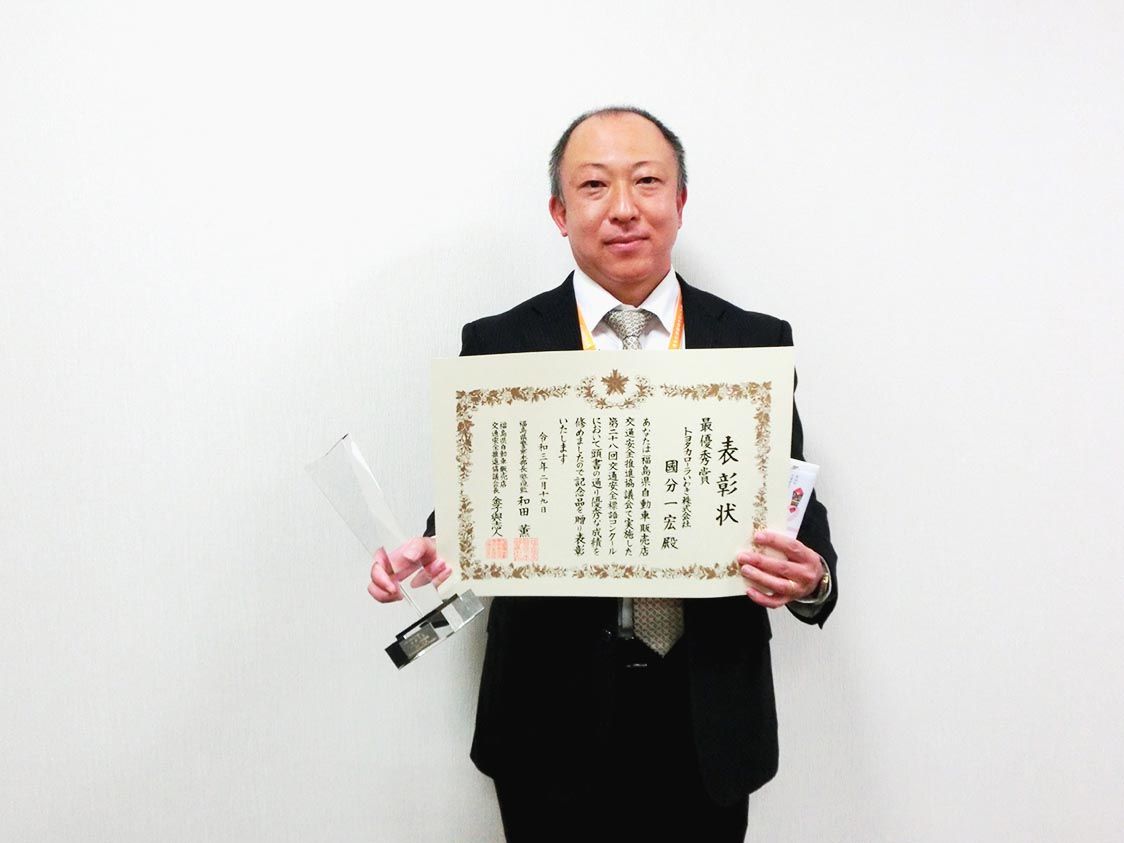 表彰状
最優秀賞
トヨタカローラいわき株式会社
國分一宏殿
あなたは福島県自動車販売店
交通安全推進協議会で実施した
第二十八回交通安全標語コンクール
において頭書の通り優秀な成績を
修めましたので記念品を贈り表彰
いたします
令和三年二月十九日
福島県警察本部長
和田薫
福島県自動車販売店
交通安全推進協議会長
金子與志人